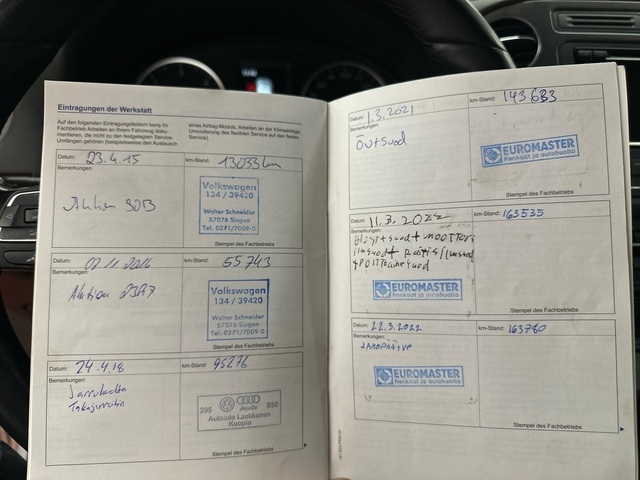 Eintragungen der Werkstatt
Auf den folgenden Eintragungsfeldern kann Ihr
Fachbetrieb Arbeiten an Ihrem Fahrzeug doku-
mentieren, die nicht zu den festgelegten Service-
Umfängen gehören (beispielsweise den Austausch
eines Airbag-Moduls, Arbeiten an der Klimaanlage,
Umcodierung des flexiblen Service auf den festen
Service).
Datum: 23.4.15 km-Stand: 13033 km
Bemerkungen:
Aktion
Volkswagen
134 / 39420
Walter Schneider
57076 Siegen
Tel. 0271/7009-0
Stempel des Fachbetriebs
Datum: km-Stand: 55743
Bemerkungen:
Aktion 23A7
Volkswagen
134 / 39420
Walter Schneider
57076 Siegen
Tel. 0271/7009-0
Stempel des Fachbetriebs
Datum: 24.4.18 km-Stand: 95276
Bemerkungen:
Jarruhuolto
Takajarruihin
295 Audi 598
Autotalo Laakkonen
Kuopio
Stempel des Fachbetriebs
Datum: 1.3.2021 km-Stand: 143.683
Bemerkungen:
Öv+suod
EUROMASTER
Renkaat ja autohuolto
Stempel des Fachbetriebs
Datum: 11.3.2022 km-Stand: 163535
Bemerkungen:
öljyt+suod+moottori
ilmsuod+
+polttoainesuod
EUROMASTER
Renkaat ja autohuolto
Stempel des Fachbetriebs
Datum: 22.3.2022 km-Stand: 163780
Bemerkungen:
EUROMASTER
Renkaat ja autohuolto
Stempel des Fachbetriebs